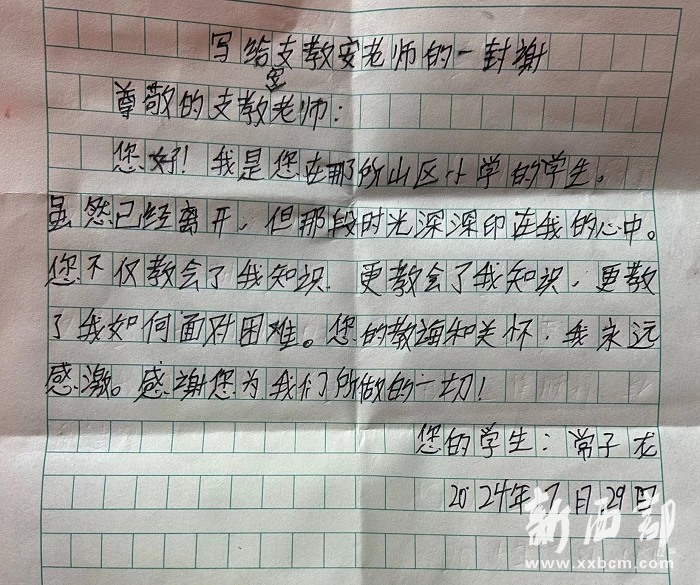 写给支教安老师的一封谢
尊敬的支教安老师:
您好!我是您在那所山区小学的学生。
虽然已经离开,但那段时光深深印在我的心中。
您不仅教会了我知识.更教会了我知识,更教
了我如何面对困难。您的教诲和关怀,我永远
感激。感谢您为我们所做的一切!
您的学生:常子龙
2024年7月29日
新西部
www.xxbcm.com